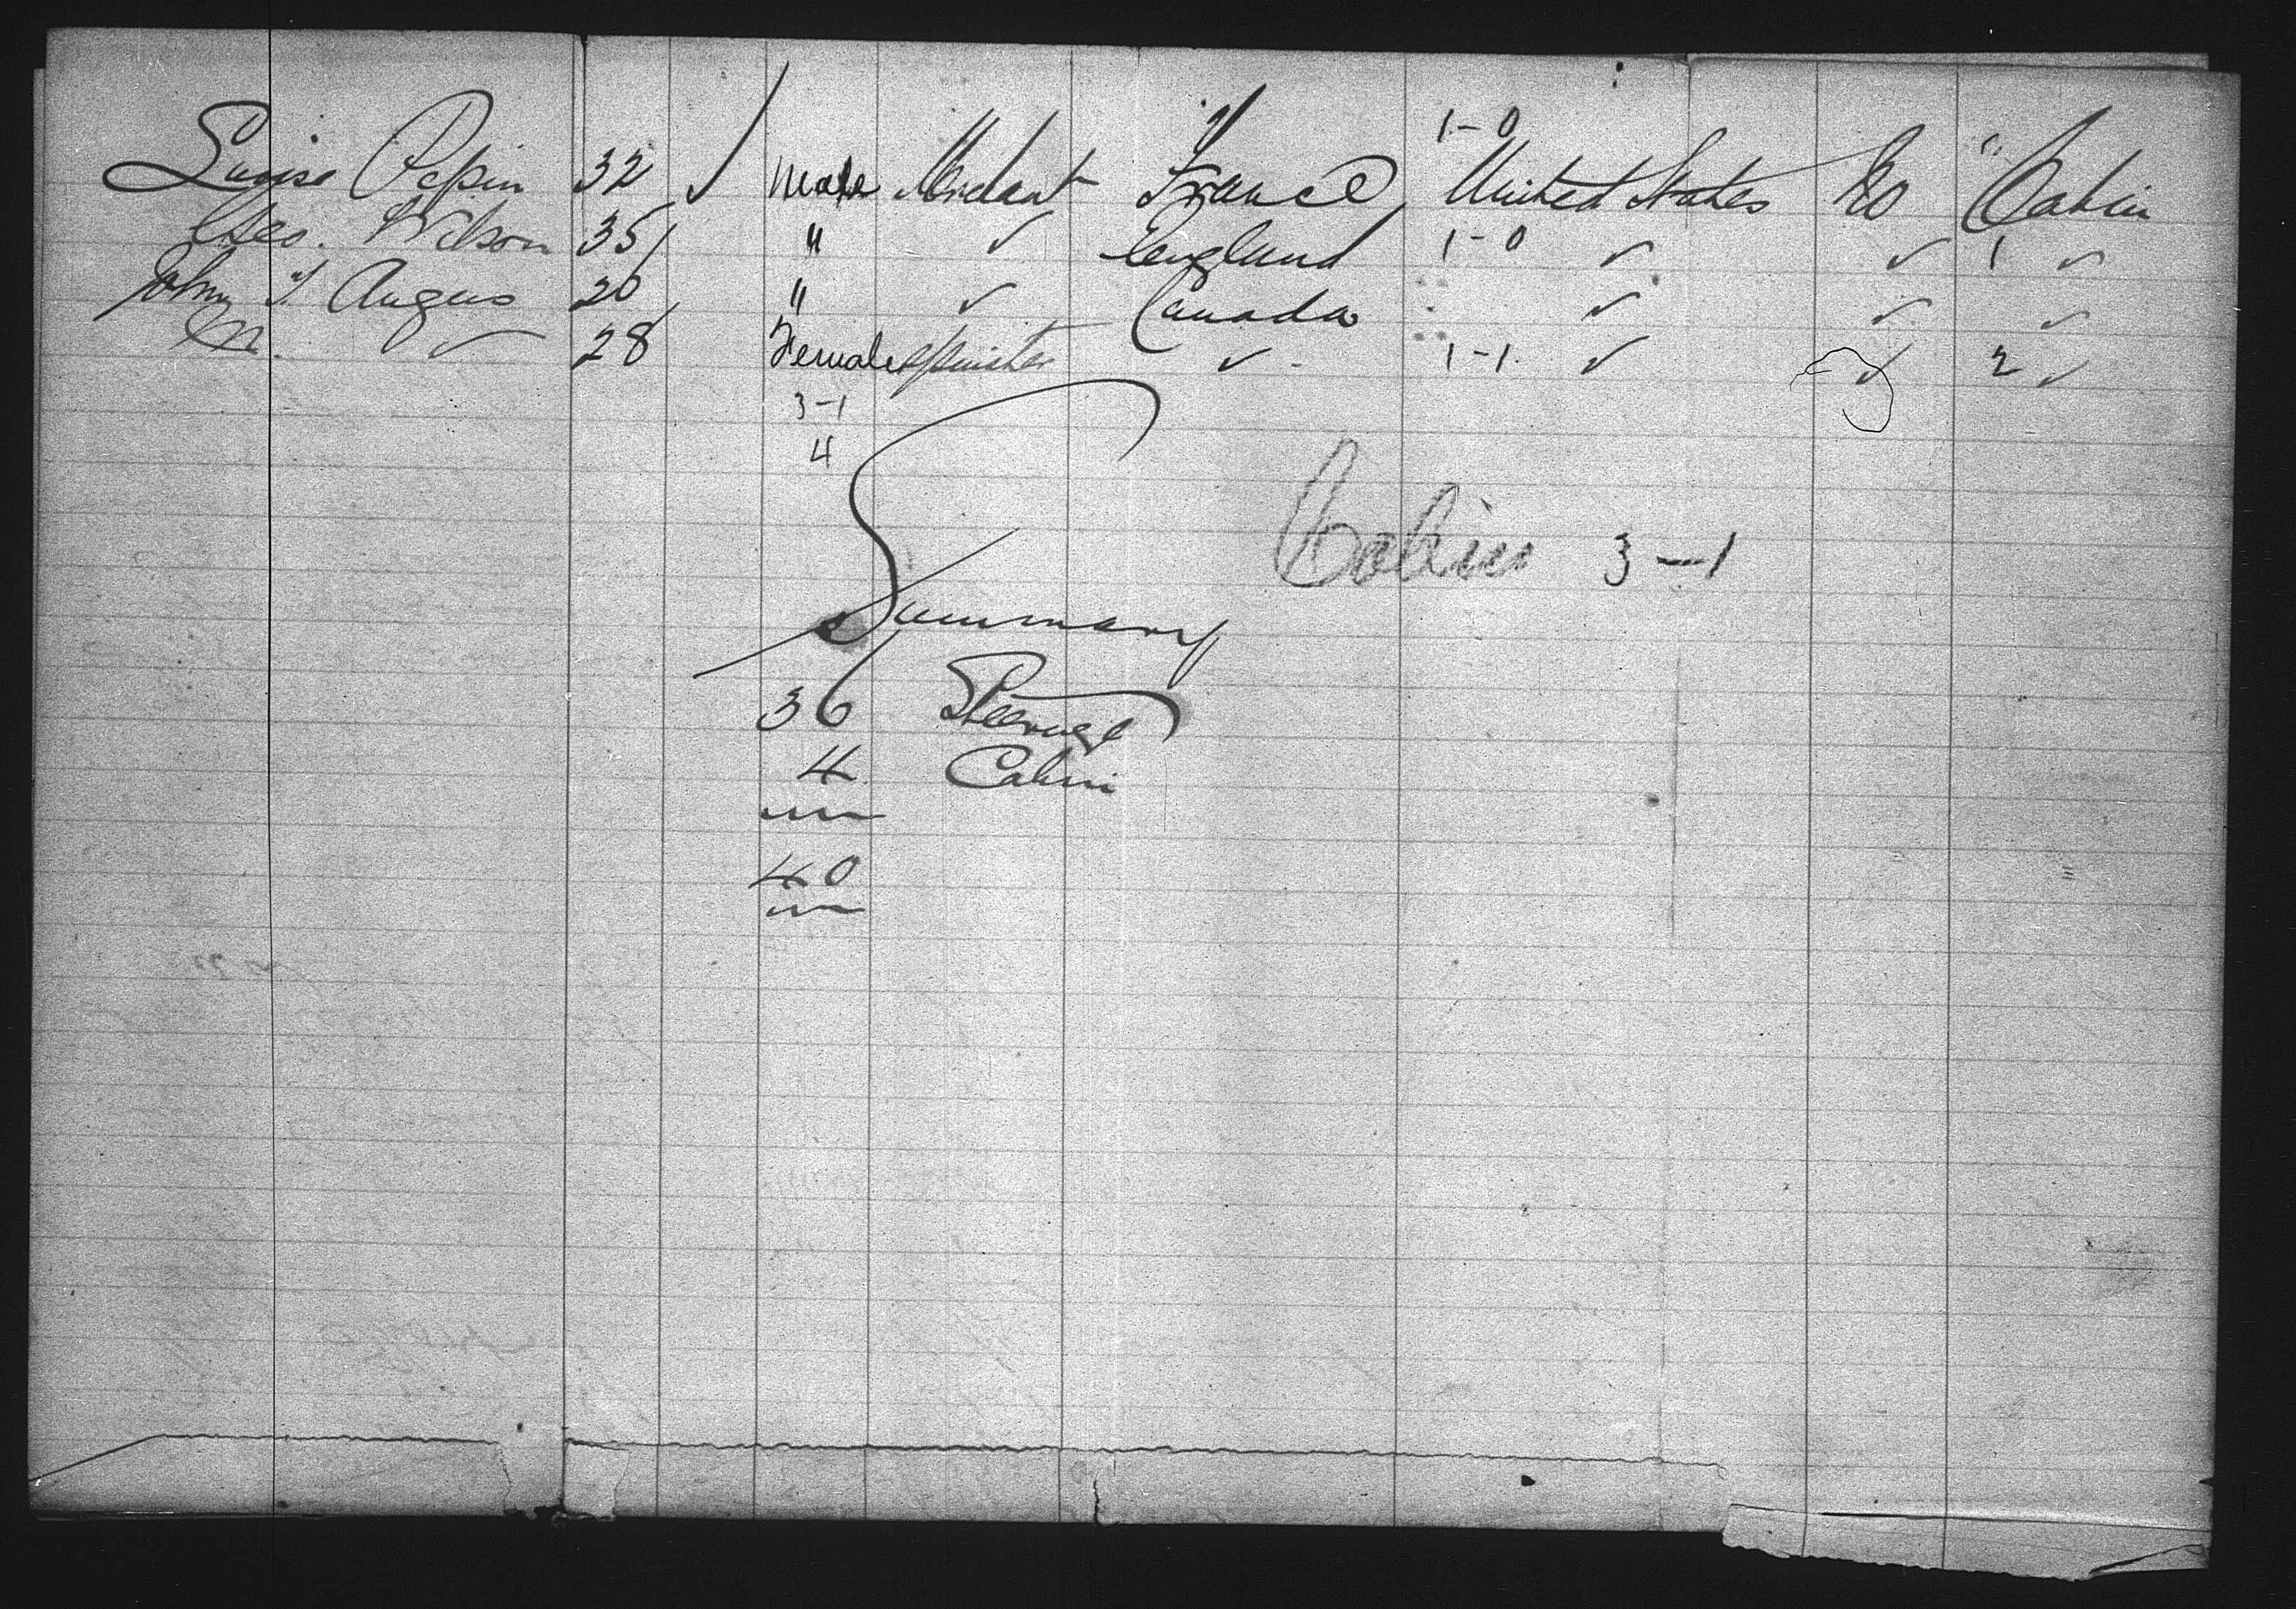 1-0
Louise Pepin 32 Male Merchant France United States No " Cabin
Geo. Wilson 35 " ✓ England 1-0 ✓ ✓ 1 ✓
John T Angus 26 " ✓ Canada ✓ ✓ ✓
M. ✓ 28 Female Spinster ✓ 1-1 ✓ ✓ 2 ✓
3-1
4
Cabin 3-1
Summary
36 Steerage
4 Cabin
40